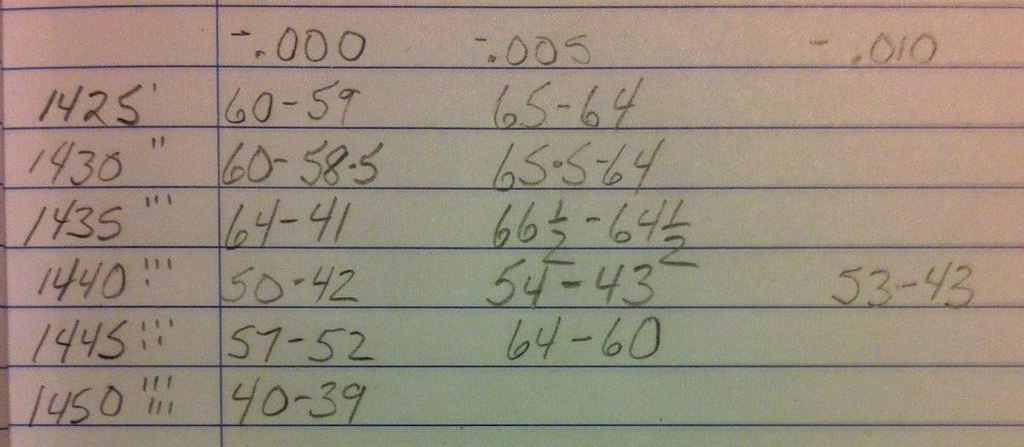 -.000 -.005 -.010
1425' 60-59 65-64
1430" 60-58.5 65.5-64
1435''' 64-41 66½-64½
1440'''' 50-42 54-43 53-43
1445''''' 57-52 64-60
1450''''''' 40-39